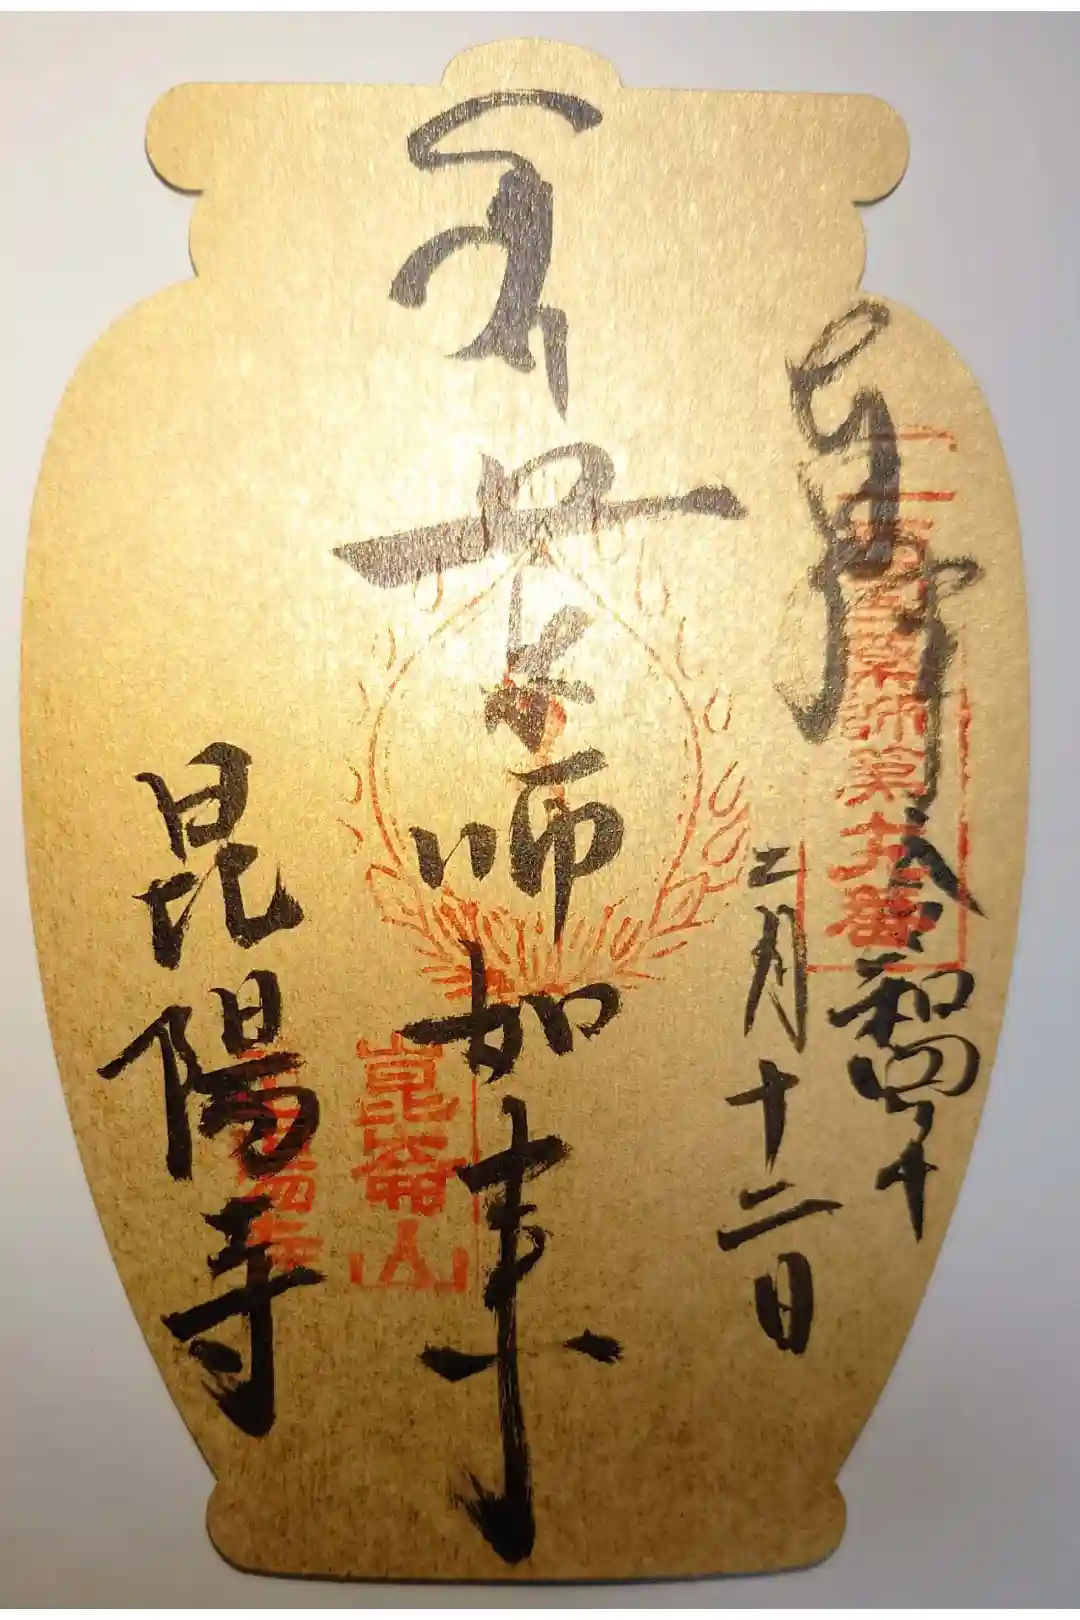 奉拝
西国薬師第十九番
令和四年
二月十二日
薬師如来
崑崙山
昆陽寺
昆陽寺